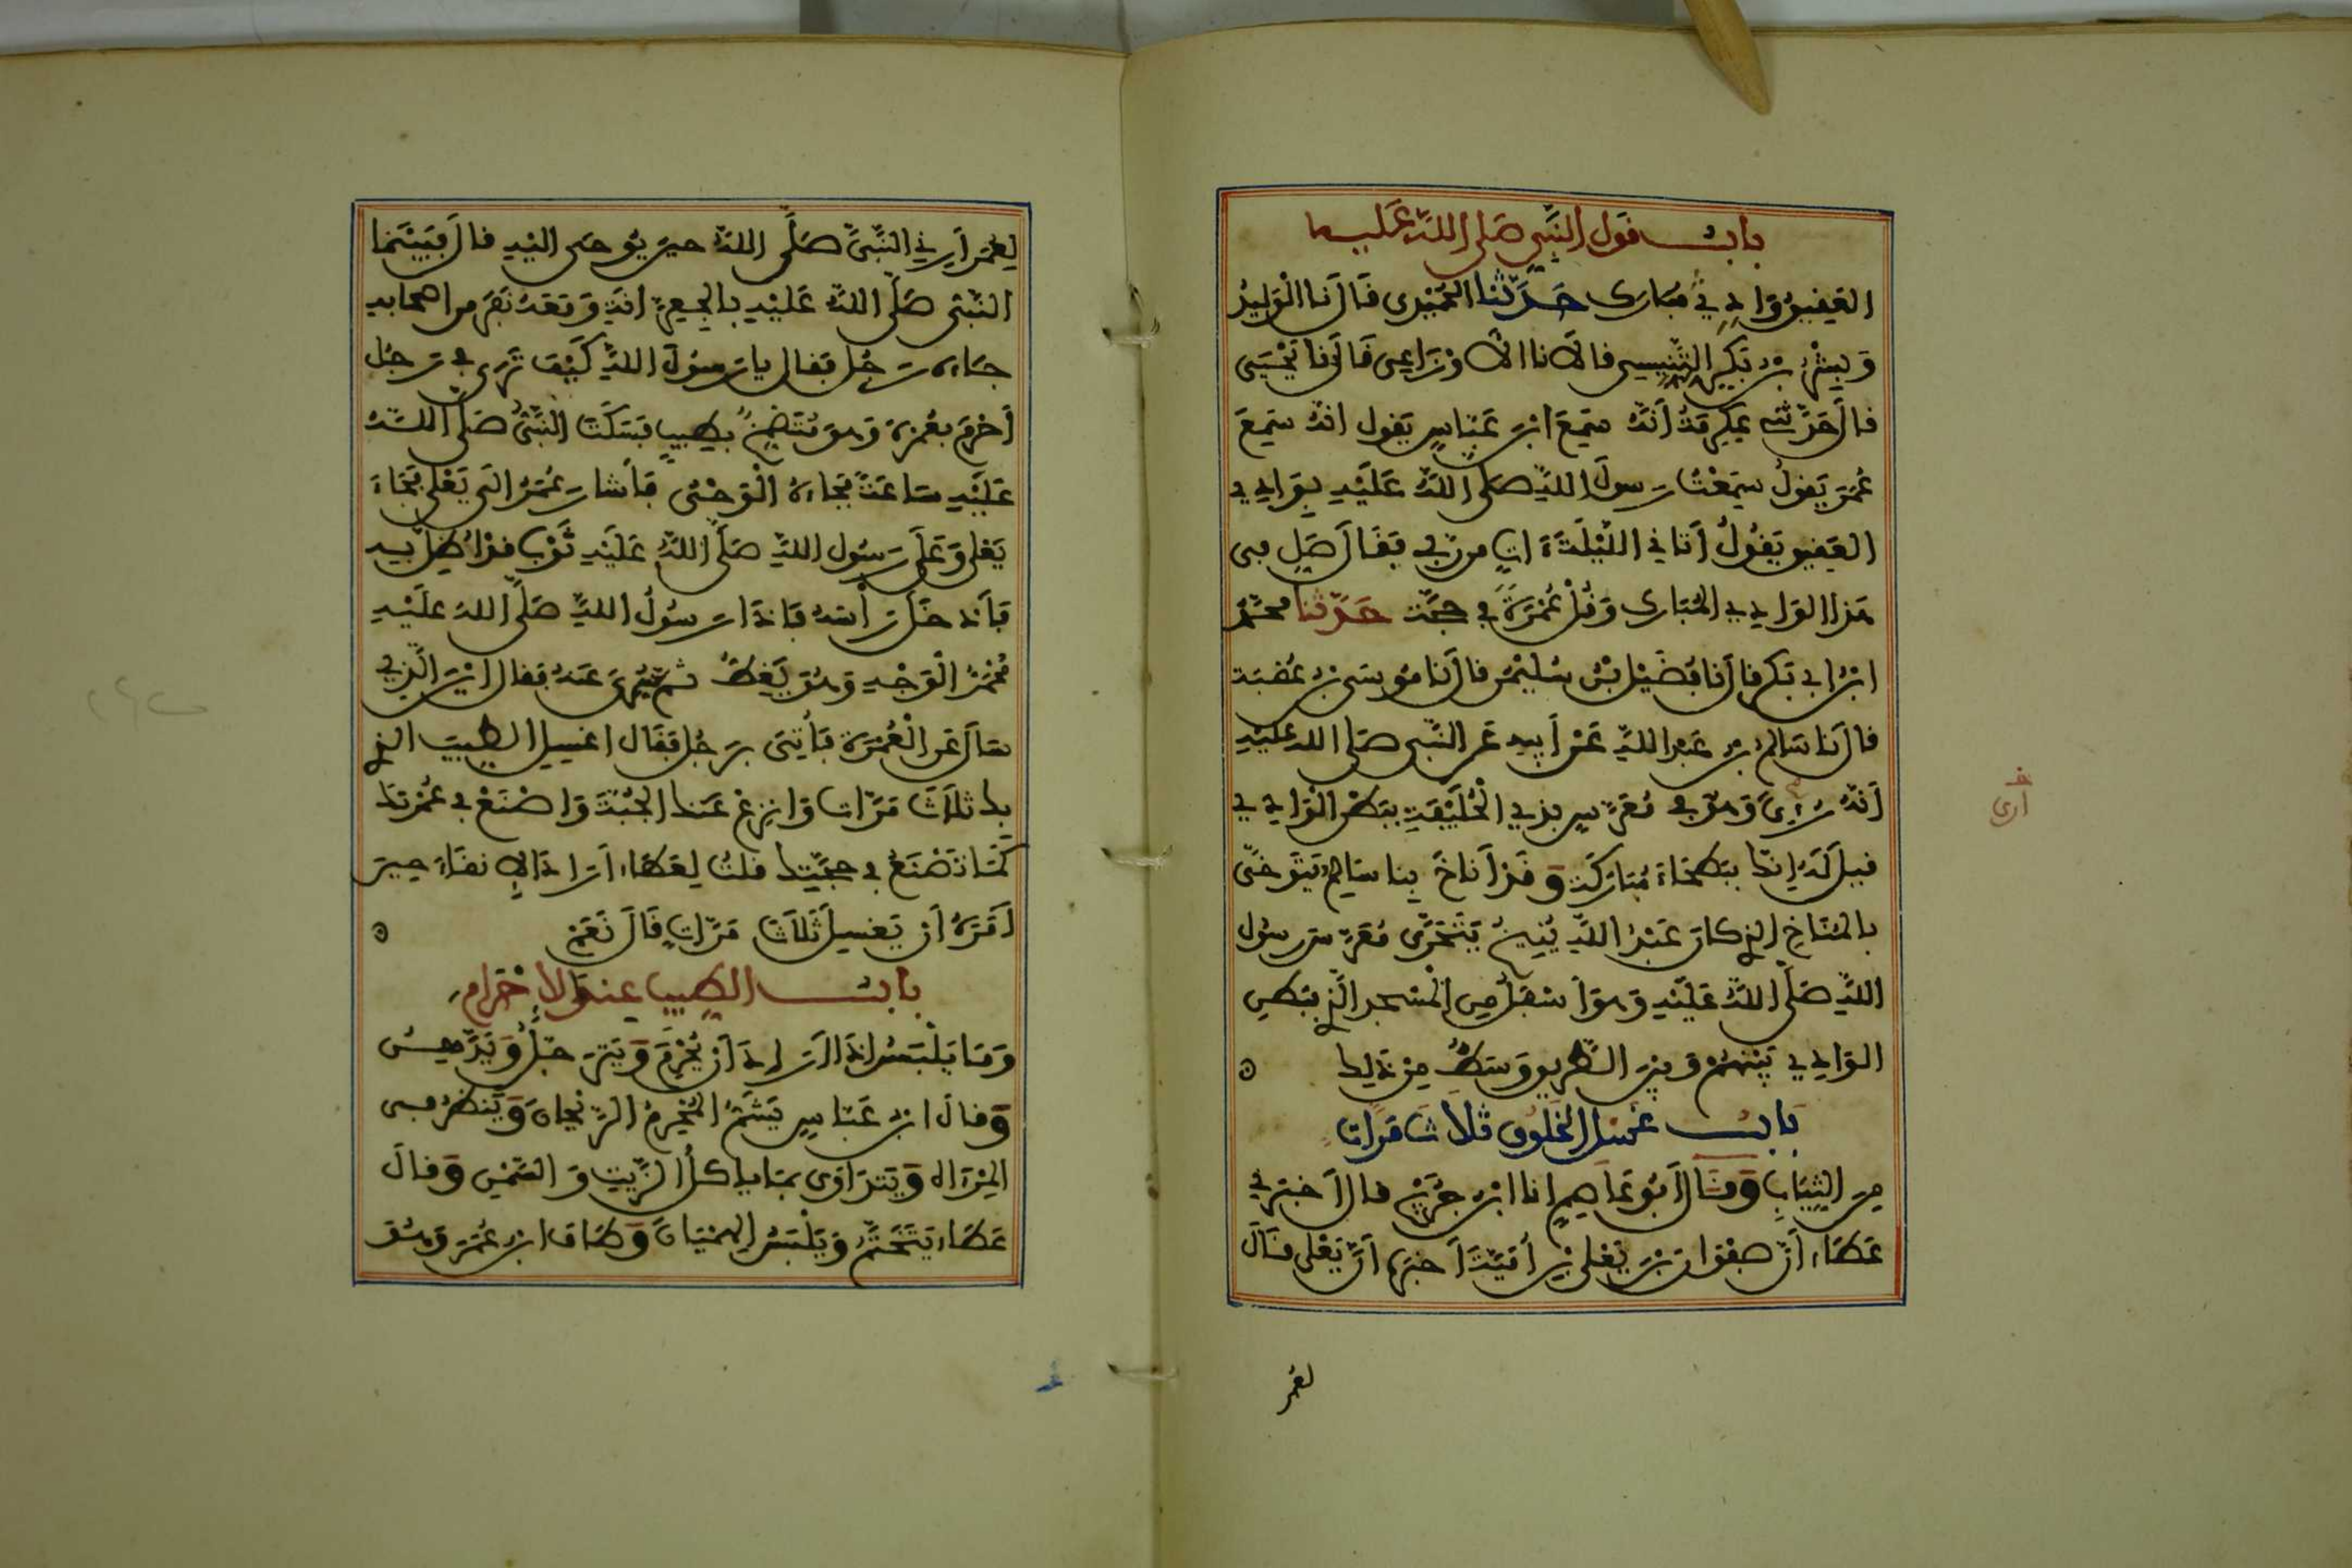 باب قول النبي صلى الله عليه
العقيق واد في مبارك حدثنا الحميدي قال نا الوليد
وبشر بن بكر التنيسي قالا نا الاوزاعي قال نا يحيى
قال حدثني عكرمة أنه سمع ابن عباس يقول انه سمع
عمر يقول سمعت رسول الله صلى الله عليه بوادي
العقيق يقول أتاني الليلة ات من ربي فقال صل في
هذا الوادي المبارك وقل عمرة في حجة حدثنا محمد
ابن ابي بكر قال نا فضيل بن سليمن قال نا موسى بن عقبة
قال نا سالم بن عبد الله عن أبيه عن النبي صلى الله عليه
أنه رءي وهو في معرس بذي الحليفة ببطن الوادي
قيل له إنك ببطحاء مباركة وقد أناخ بنا سالم يتوخى
بالمناخ الذي كان عبد الله ينيخ يتحرى معرس رسول
الله صلى الله عليه وهو أسفل من المسجد الذي ببطن
الوادي بينهم وبين الطريق وسط من ذلك
باب غسل الخلوق ثلاث مرات
من الثياب وقال أبو عاصم انا ابن جريج قال أخبرني
عطاء أن صفوان بن يعلى بن أمية أخبره أن يعلى قال
لعمر
أرى
لعمر أرني النبي صلى الله حين يوحى اليه قال فبينما
النبي صلى الله عليه بالجعرانة ومعه نفر من اصحابه
جاءه رجل فقال يا رسول الله كيف ترى في رجل
أحرم بعمرة وهو متضمخ بطيب فسكت النبي صلى الله
عليه ساعة فجاءه الوحي فأشار عمر الى يعلى فجاء
يعلى وعلى رسول الله صلى الله عليه ثوب قد أظل به
فأدخل رأسه فاذا رسول الله صلى الله عليه
محمر الوجه وهو يغط ثم سري عنه فقال اين الذي
سأل عن العمرة فأتي برجل فقال اغسل الطيب الذي
بك ثلاث مرات وانزع عنك الجبة واصنع في عمرتك
كما تصنع في حجتك قلت لعطاء أراد الانقاء حين
أمره أن يغسل ثلاث مرات قال نعم
باب الطيب عند الإحرام
وما يلبس إذا اراد أن يحرم ويترجل ويدهن
وقال ابن عباس يشم المحرم الريحان وينظر في
المرءاة ويتداوى بما ياكل الزيت والسمن وقال
عطاء يتختم ويلبس الهميان وطاف ابن عمر وهو